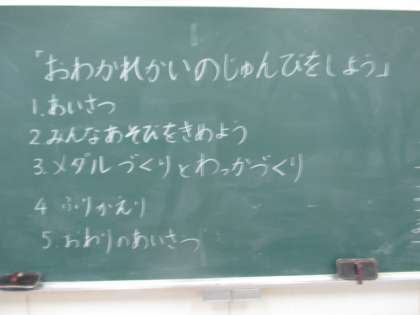 「おわかれかいのじゅんびをしよう」
1.あいさつ
2.みんなあそびをきめよう
3.メダルづくりとわっかづくり
4 ふりかえり
5.おわりのあいさつ